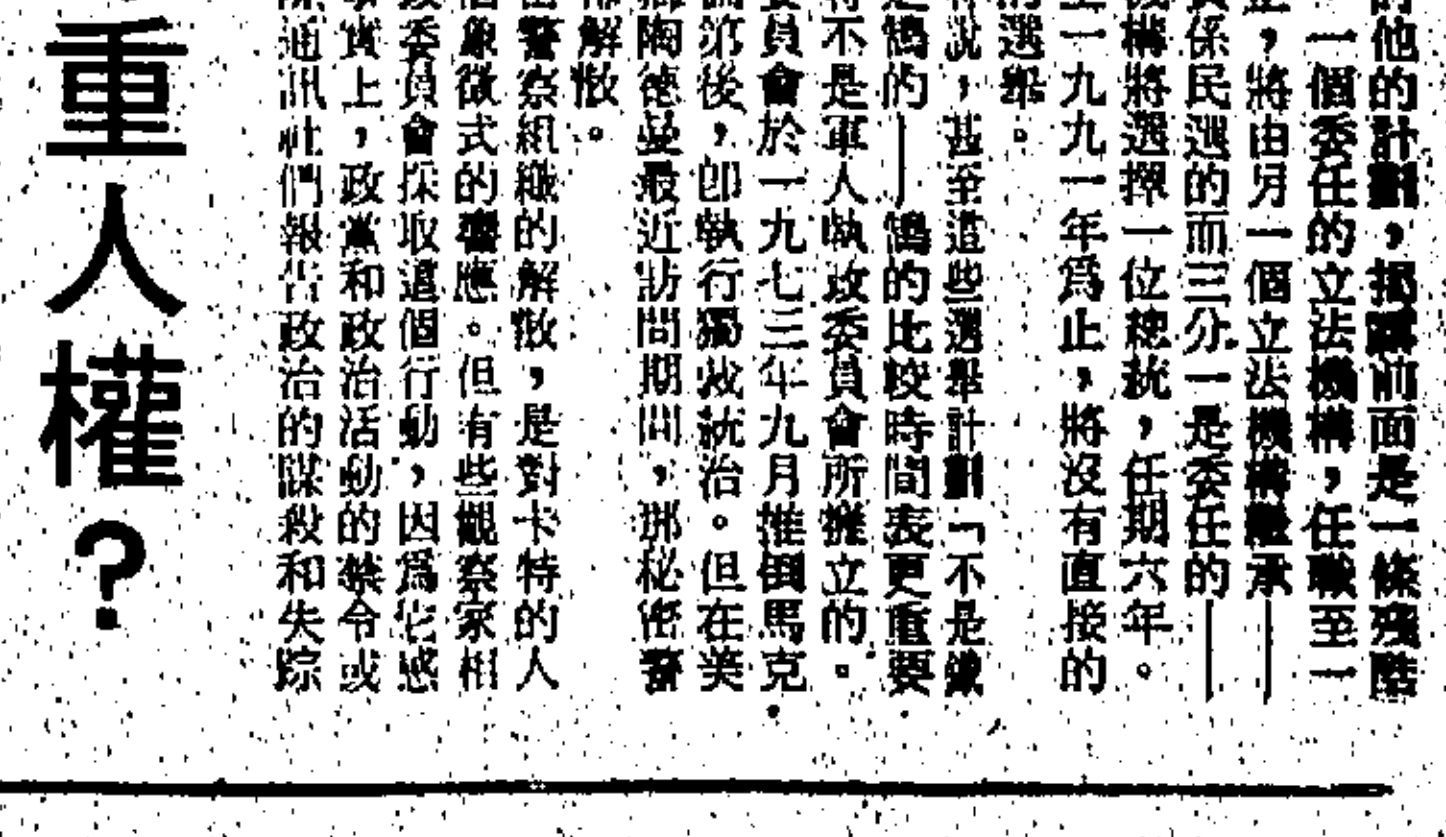 的他的計劃，揭曉前面是一條殘酷
一個委任的立法機構，任職至一
，將由另一個立法機構繼承——
員係民選的而三分一是委任的——
機構將選擇一位總統，任期六年。
至一九九一年爲止，將沒有直接的
的選舉。
說，甚至這些選舉計劃「不是鐵
是鵠的——鵠的比較時間表更重要
不是軍人執政委員會所擁立的。
委員會於一九七三年九月推倒馬克
第後，卽執行獨裁統治。但在美
陶德曼最近訪問期間，那秘密警
解散。
警察組織的解散，是對卡特的人
象徵式的響應。但有些觀察家相
委員會採取這個行動，因爲它感
事實上，政黨和政治活動的禁令或
通訊社們報告政治的謀殺和失踪
重人權？